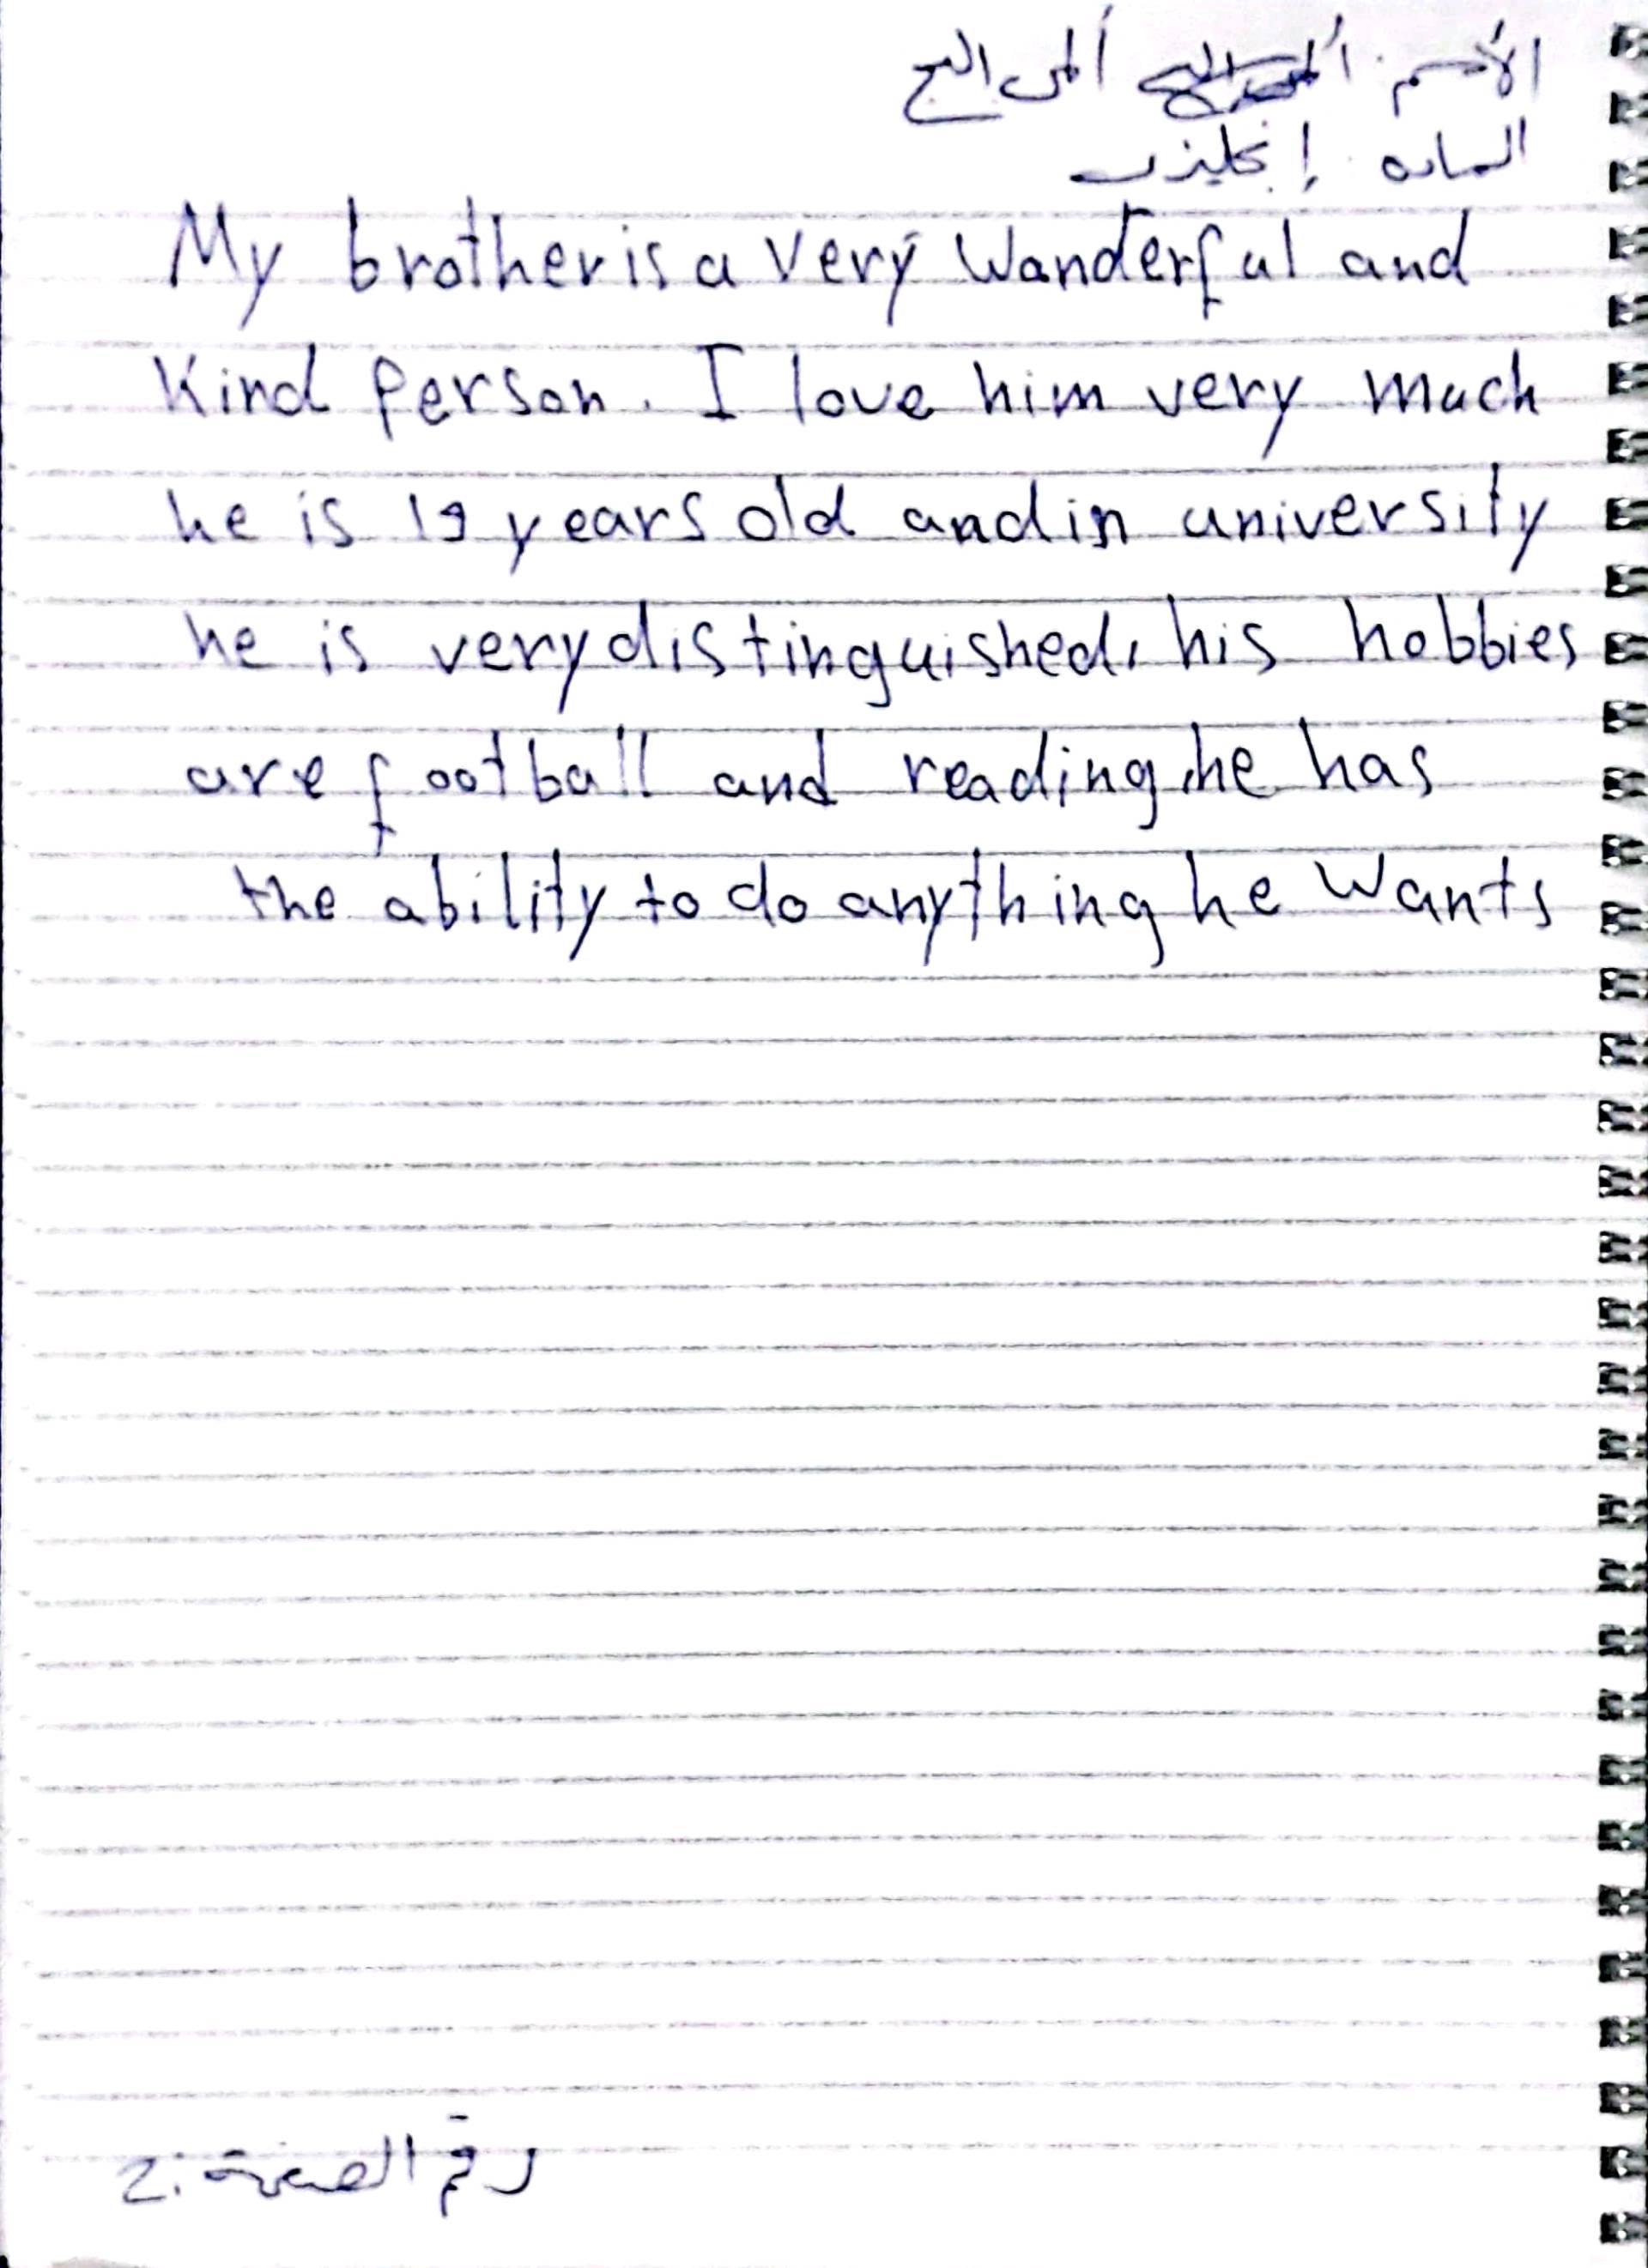 الأسم : ألمى البح
الماده : إنجليزي
My brother is a very wanderful and
Kind person. I love him very much
he is 19 years old and in university
he is very distinguished, his hobbies
are football and reading, he has
the ability to do anything he wants
رقم الصفحة : 2